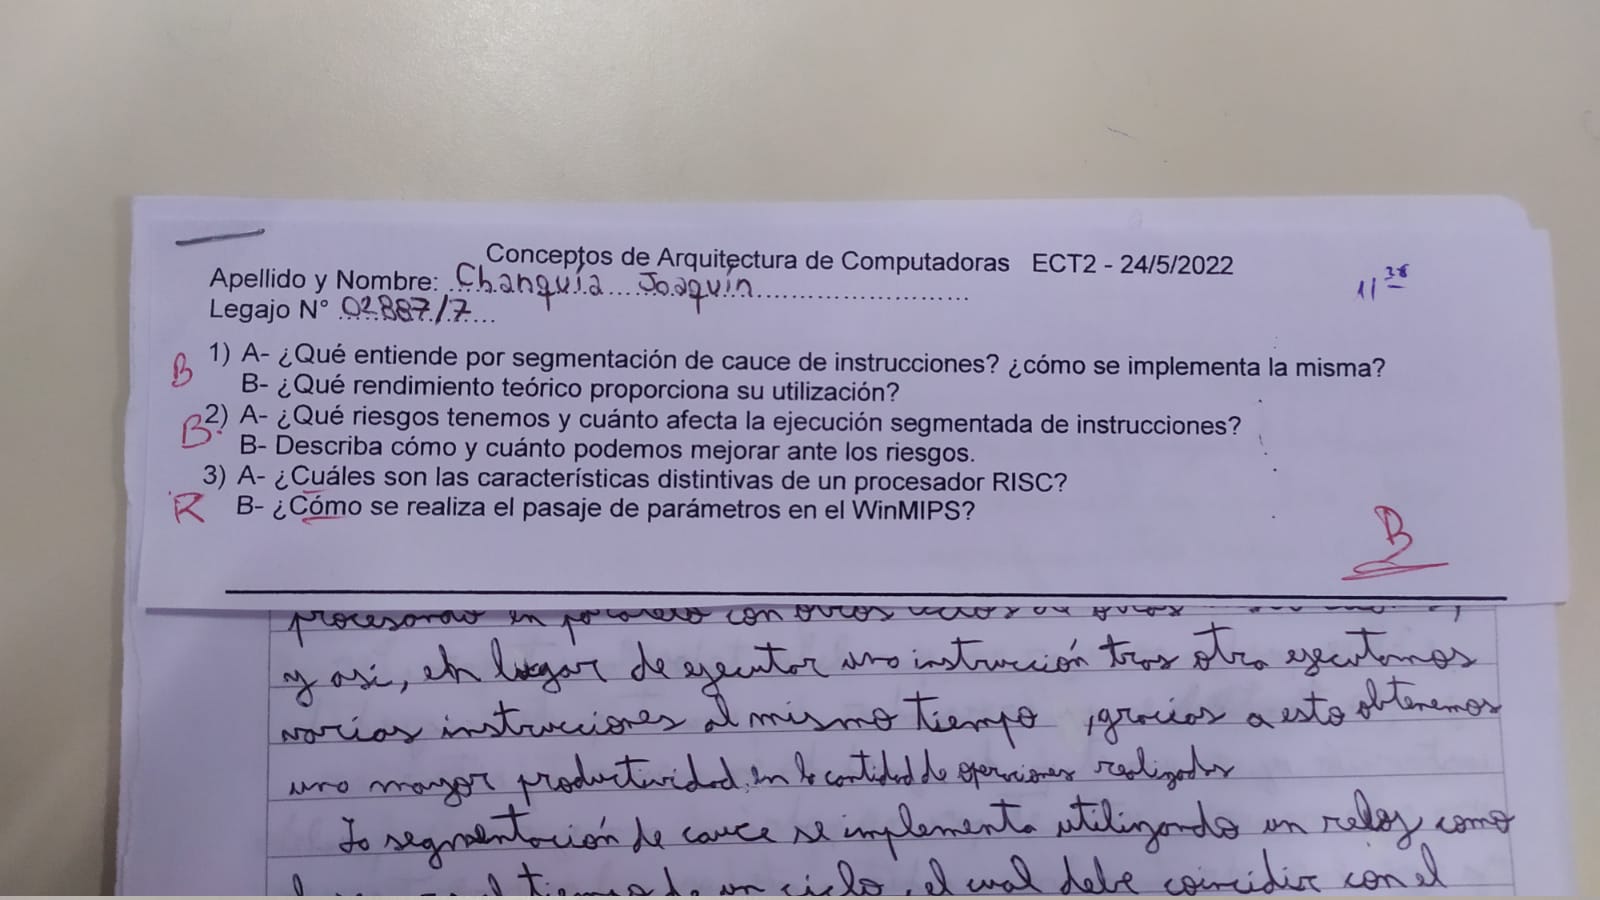 Conceptos de Arquitectura de Computadoras ECT2 - 24/5/2022
Apellido y Nombre: Changuía Joaquín
Legajo N° 02887/7
11 38
B
1) A- ¿Qué entiende por segmentación de cauce de instrucciones? ¿cómo se implementa la misma?
B- ¿Qué rendimiento teórico proporciona su utilización?
B-
2) A- ¿Qué riesgos tenemos y cuánto afecta la ejecución segmentada de instrucciones?
B- Describa cómo y cuánto podemos mejorar ante los riesgos.
3) A- ¿Cuáles son las características distintivas de un procesador RISC?
R
B- ¿Cómo se realiza el pasaje de parámetros en el WinMIPS?
B
procesando en paralelo con otros
y asi, en lugar de ejecutar una instrucción tras otra ejecutamos
varias instrucciones al mismo tiempo, gracias a esto obtenemos
una mayor productividad en la cantidad de operaciones realizadas
La segmentación de cauce se implementa utilizando un reloj como
tiempo de un ciclo, el cual debe coincidir con el